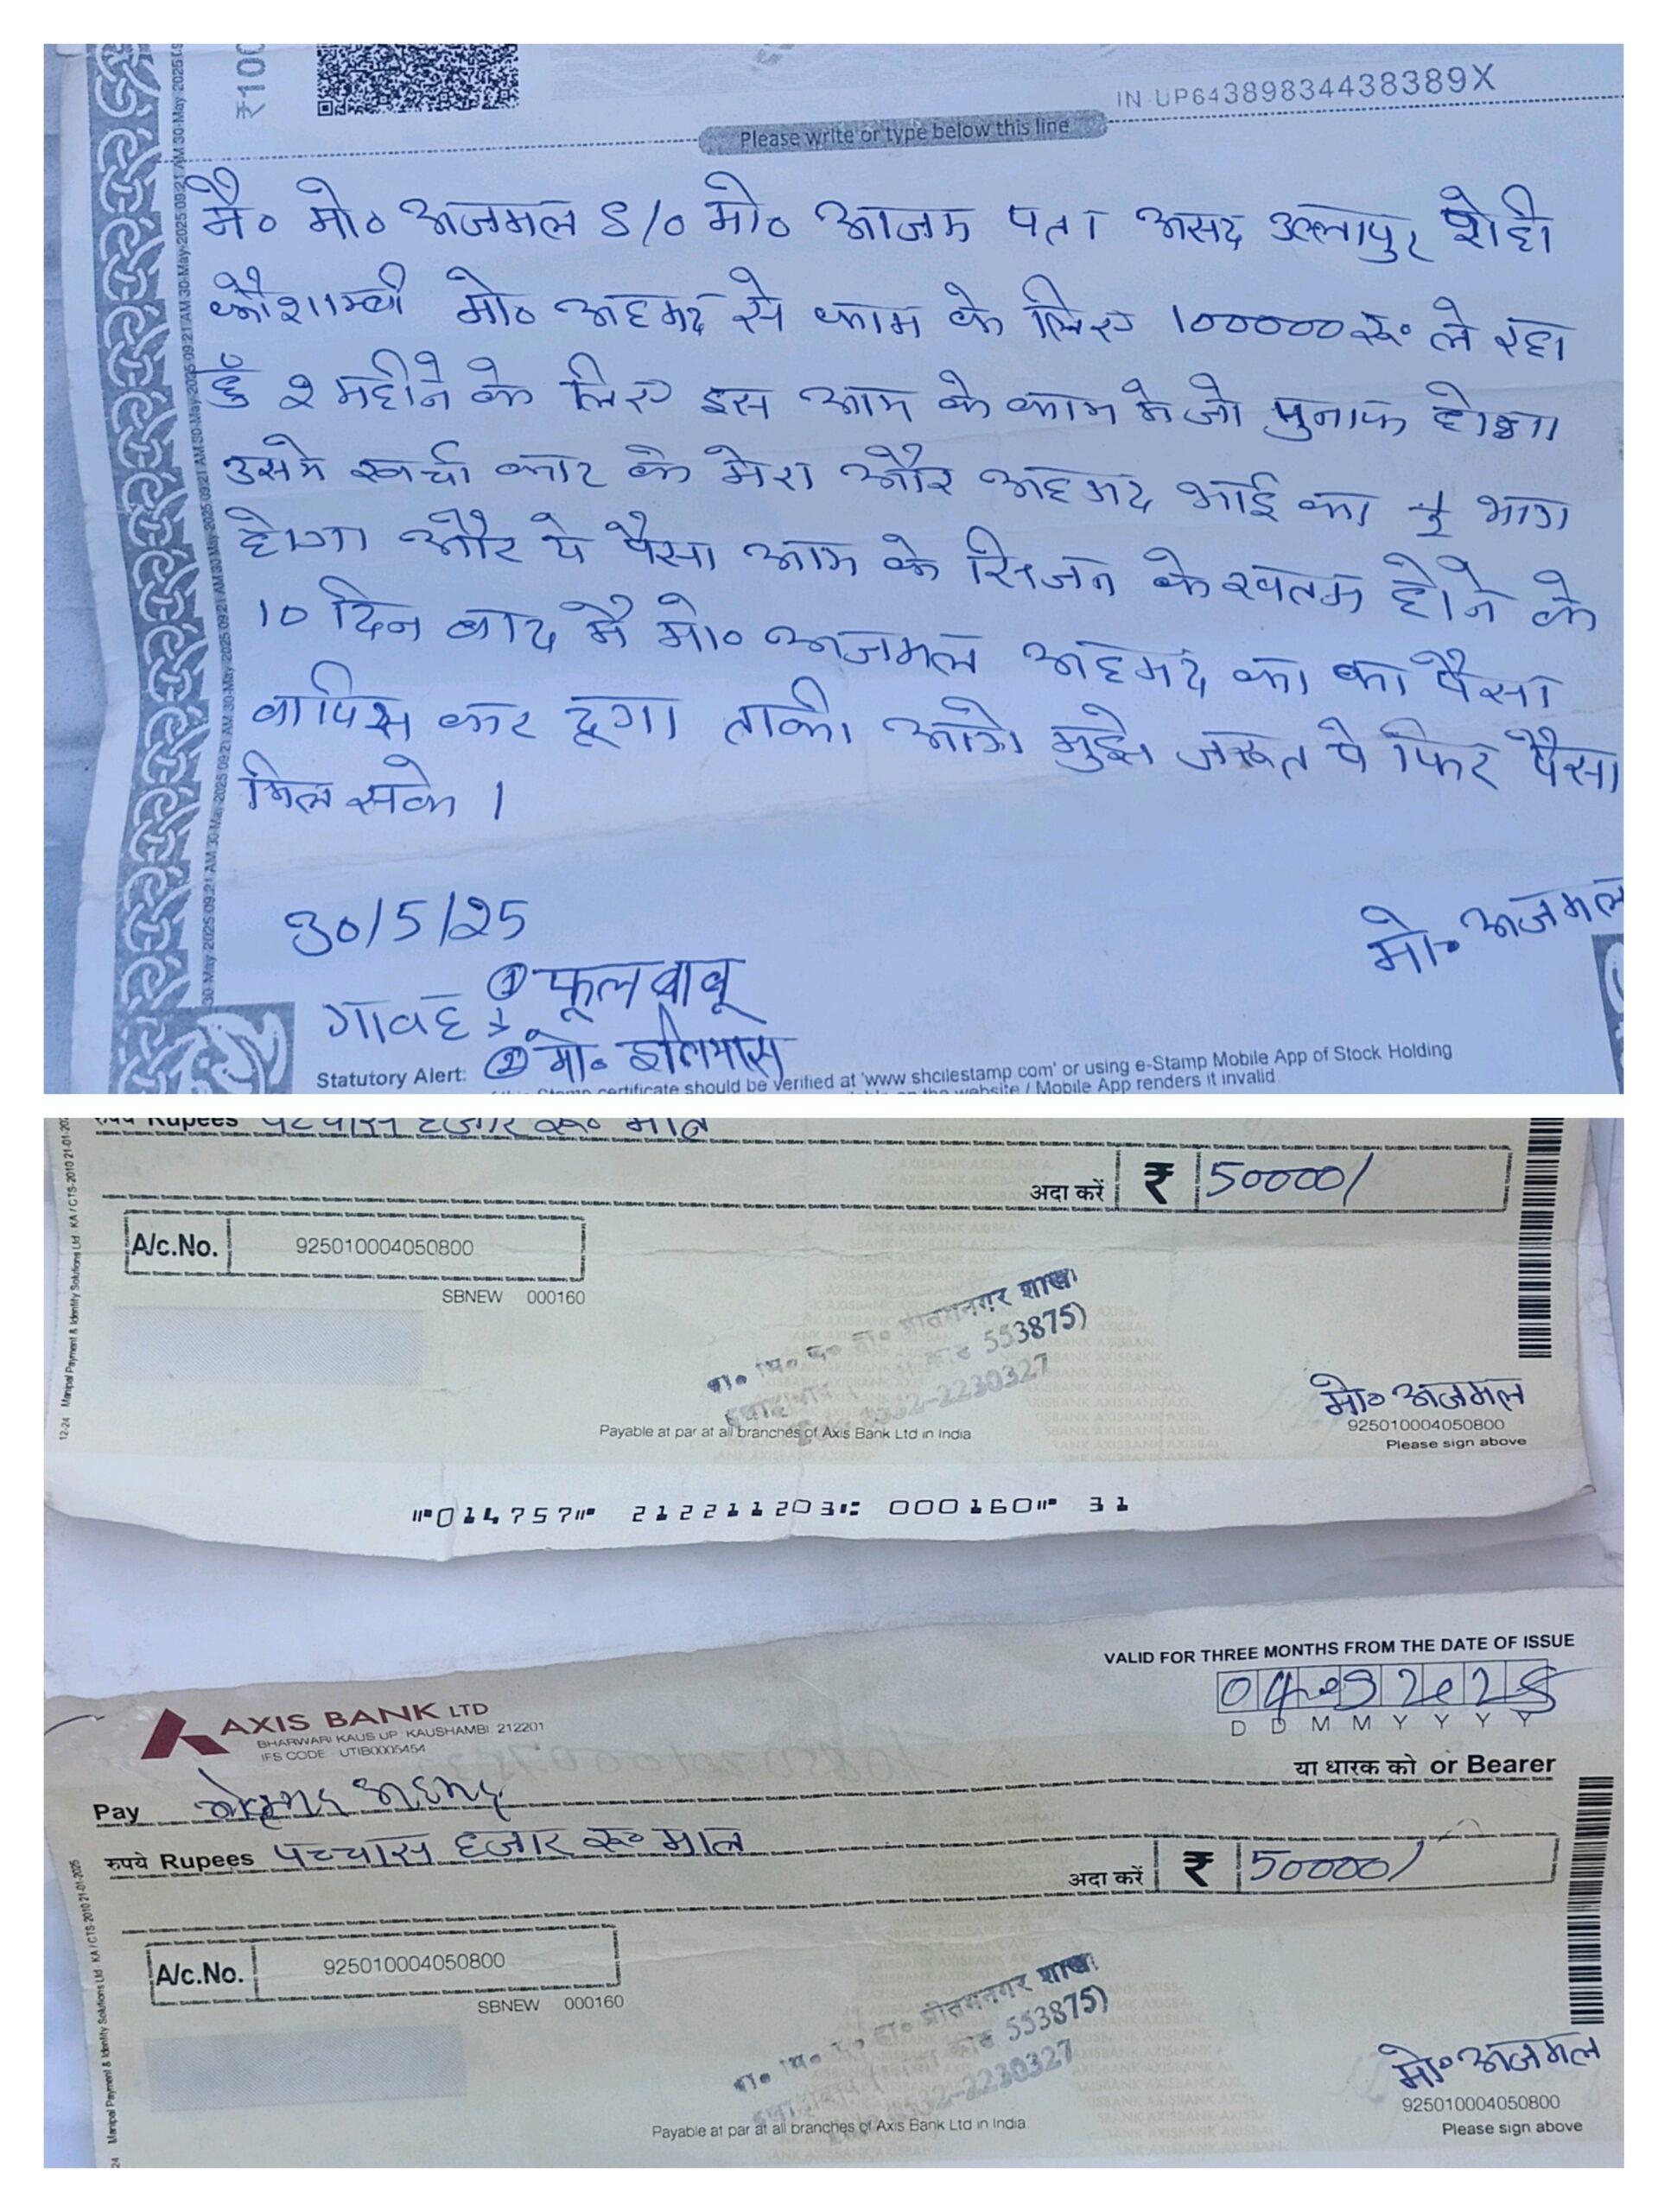 ₹100
IN-UP64389834438389X
Please write or type below this line
मै० मो० अजमल S/O मो० आजम पता असद उल्लापुर रोही
कौशाम्बी मो० अहमद से काम के लिए 100000 रू० ले रहा
हुँ 2 महीने के लिए इस आम के काम मे जो मुनाफ होगा
उसमे खर्चा काट के मेरा और अहमद भाई का भाग
होगा और ये पैसा आम के सिजन के खतम होने के
10 दिन बाद मै मो० अजमल अहमद का का पैसा
वापिस कर दूगा ताकी आगे मुझे जरूत पे फिर पैसा
मिल सके ।
30/5/25
मो० अजमल
गावह
① फूलबाबू
② मो० इलियास
Statutory Alert:
certificate should be verified at 'www.shcilestamp.com' or using e-Stamp Mobile App of Stock Holding
the website / Mobile App renders it invalid
रुपये Rupees पच्चास हजार रू० मात्र
अदा करें ₹ 50000/
A/c.No. 925010004050800
SBNEW 000160
प्रीतमनगर शाखा
553875)
2230327
मो० अजमल
925010004050800
Please sign above
Payable at par at all branches of Axis Bank Ltd in India
12-24 Manipal Payment & Identity Solutions Ltd - KA / CTS-2010 21-01-202
⑈014757⑈ 212211203⑆ 000160⑈ 31
VALID FOR THREE MONTHS FROM THE DATE OF ISSUE
D D M M Y Y Y Y
AXIS BANK LTD
BHARWARI KAUS UP KAUSHAMBI 212201
IFS CODE UTIB0005454
या धारक को or Bearer
Pay अहमद
रुपये Rupees पच्चास हजार रू० मात्र
अदा करें ₹ 50000/
A/c.No. 925010004050800
SBNEW 000160
प्रीतमनगर शाखा
553875)
2230327
मो० अजमल
925010004050800
Please sign above
Payable at par at all branches of Axis Bank Ltd in India
Manipal Payment & Identity Solutions Ltd - KA / CTS-2010 21-01-2025